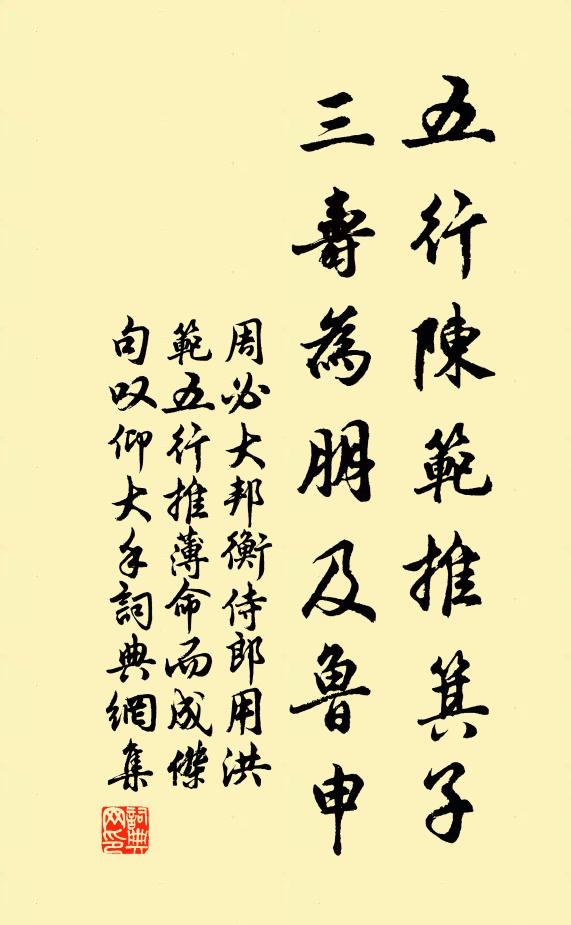 五行陳範推箕子
三壽為朋及魯申
周必大邦衡侍郎用洪
範五行推薄命而成傑
句叹仰大手詞典網集
詞典
网印